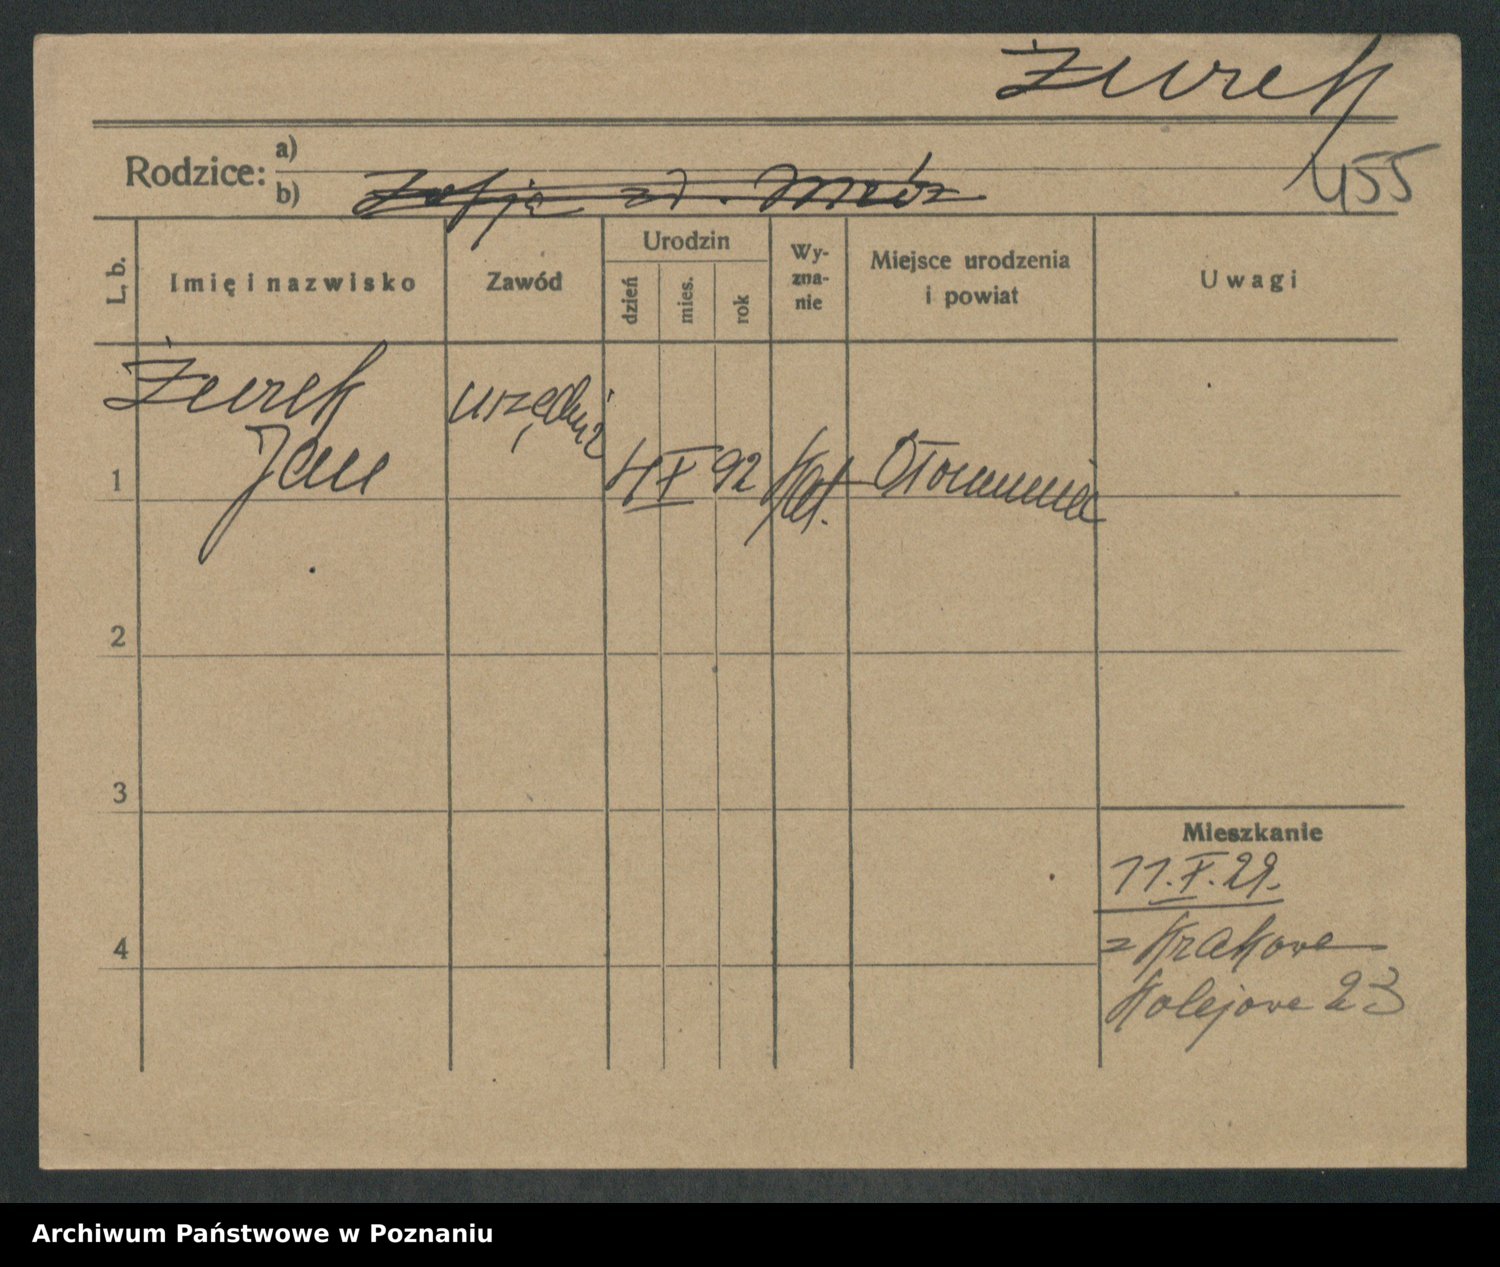 Żurek
455
Rodzice: a)
b) Zofja zd. Mróz
L. b.
Imię i nazwisko
Zawód
Urodzin
dzień
mies.
rok
Wy-
zna-
nie
Miejsce urodzenia
i powiat
Uwagi
Żurek
Jan
urzędnik
4 X 92
Kat.
1
2
3
4
Mieszkanie
11.X.29.
z Krakowa
Kolejowa 23
Archiwum Państwowe w Poznaniu